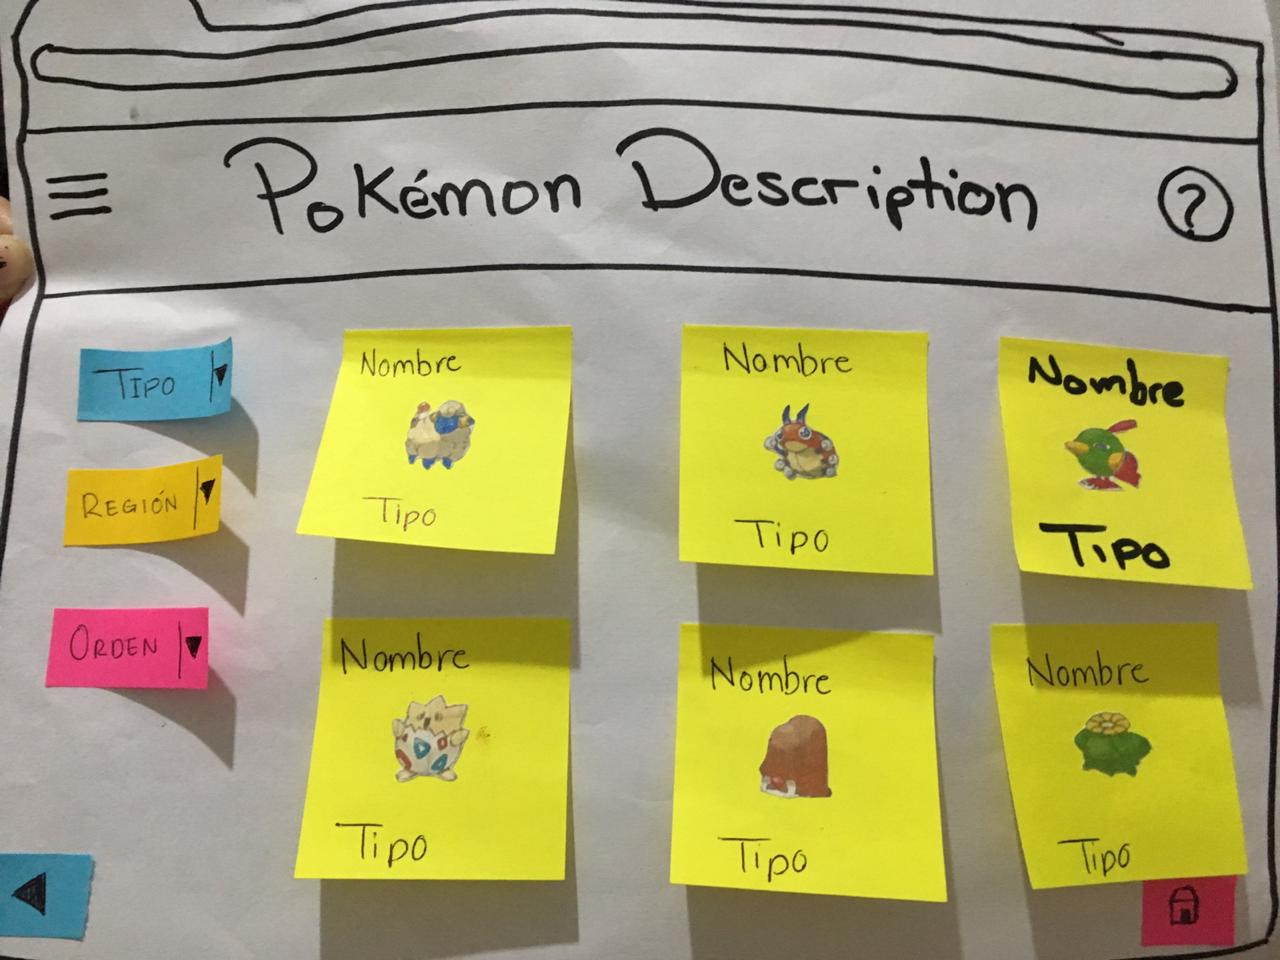 Pokémon Description ?
TIPO
REGIÓN
ORDEN
Nombre
Tipo
Nombre
Tipo
Nombre
Tipo
Nombre
Tipo
Nombre
Tipo
Nombre
Tipo